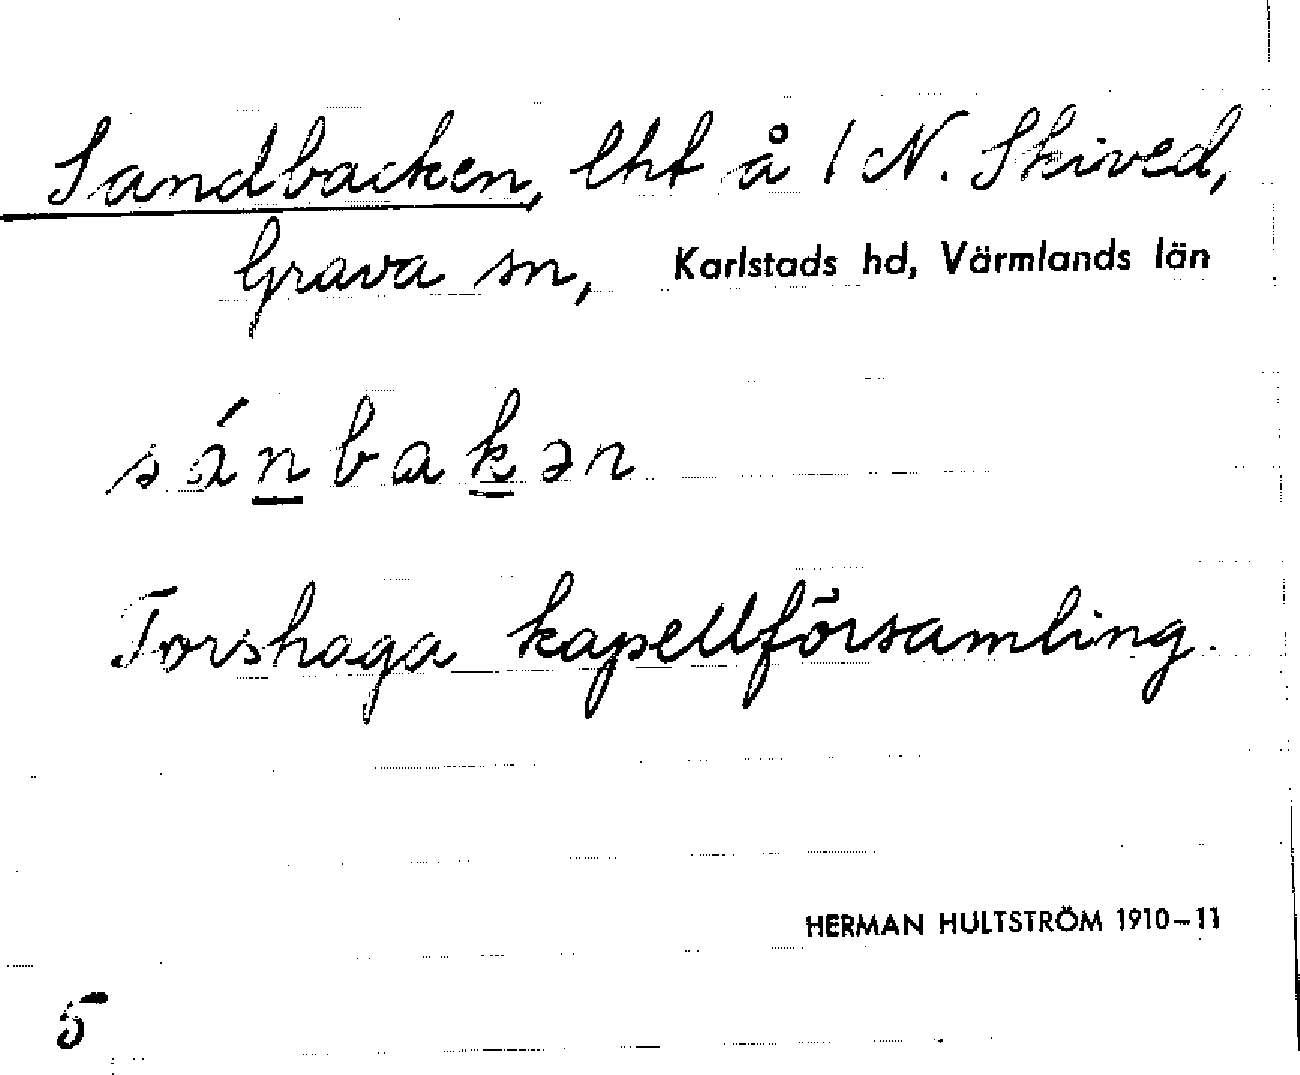 Sandbacken, lht å 1 N. Skived,
Grava sn, Karlstads hd, Värmlands län
sánbakən
Torshaga kapellförsamling.
HERMAN HULTSTRÖM 1910–11
5